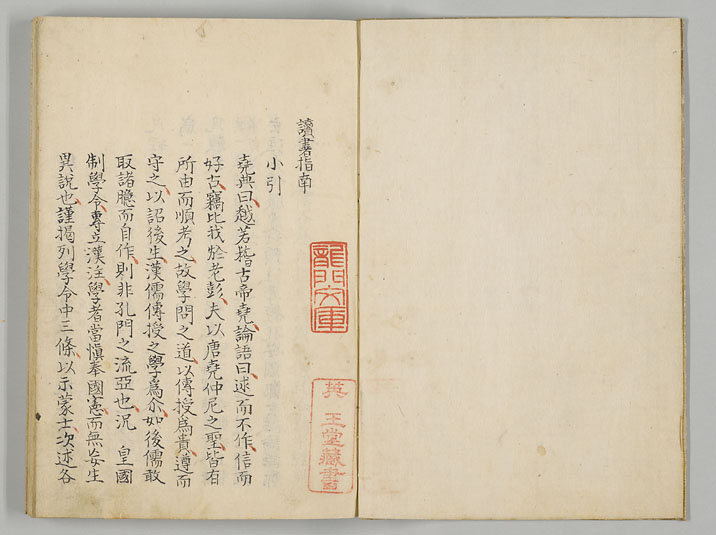 讀書指南
小引
堯典曰越若稽古帝堯論語曰述而不作信而
好古竊比我於老彭夫以唐堯仲尼之聖皆有
所由而順考之故學問之道以傳授爲貴遵而
守之以詔後生漢儒傳授之學爲尒如後儒敢
取諸臆而自作則非孔門之流亞也況 皇國
制學令專立漢注學者當愼奉國憲而無妄生
異說也謹揭列學令中三條以示蒙士次述各
龍門文庫
王堂藏書